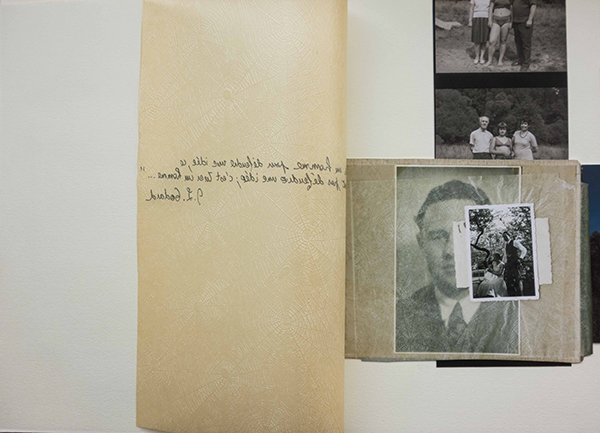 un homme pour défendre une idée, ce
pas défendre une idée, c'est tuer un homme..."
J.L. Godard